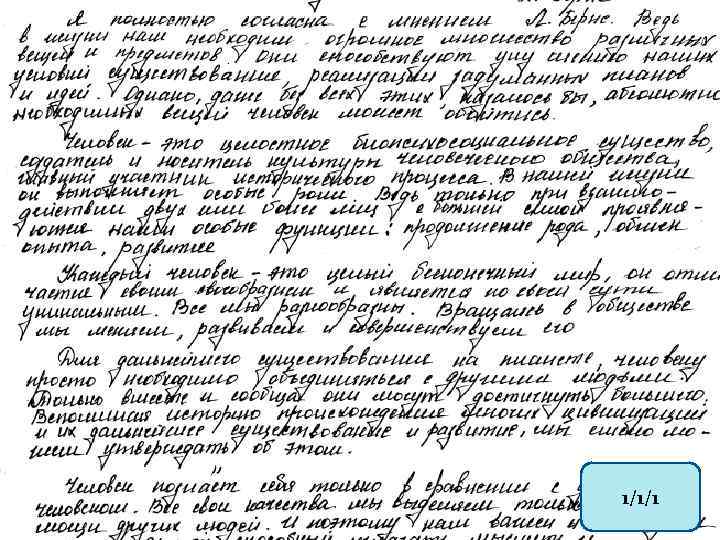 Я полностью согласна с мнением Л. Берне. Ведь
в жизни нам необходимо огромное множество различных
вещей и предметов. Они способствуют улучшению наших
условий существования, реализации задуманных планов
и идей. Однако, даже без всех этих, казалось бы, абсолютно
необходимых вещей человек может обойтись.
Человек - это целостное биопсихосоциальное существо,
создатель и носитель культуры человеческого общества,
главный участник исторического процесса. В нашей жизни
он выполняет особые роли. Ведь только при взаимо-
действии двух или более лиц с большей силой проявля-
ются наши особые функции: продолжение рода, обмен
опыта, развитие
Каждый человек - это целый бесконечный мир, он отли
частие своим своеобразием и является по своей сути
уникальным. Все мы разнообразны. Вращаясь в обществе
мы меняем, развиваем и совершенствуем его
Для дальнейшего существования на планете, человеку
просто необходимо объединяться с другими людьми.
Только вместе и сообща они могут достигнуть большего.
Вспоминая историю происхождения многих цивилизаций
и их дальнейшее существование и развитие, мы смело мо-
жем утверждать об этом.
Человек познаёт себя только в сравнении с
человеком. Все свои качества мы выделяем только
мощи других людей. И поэтому нам важен
1/1/1